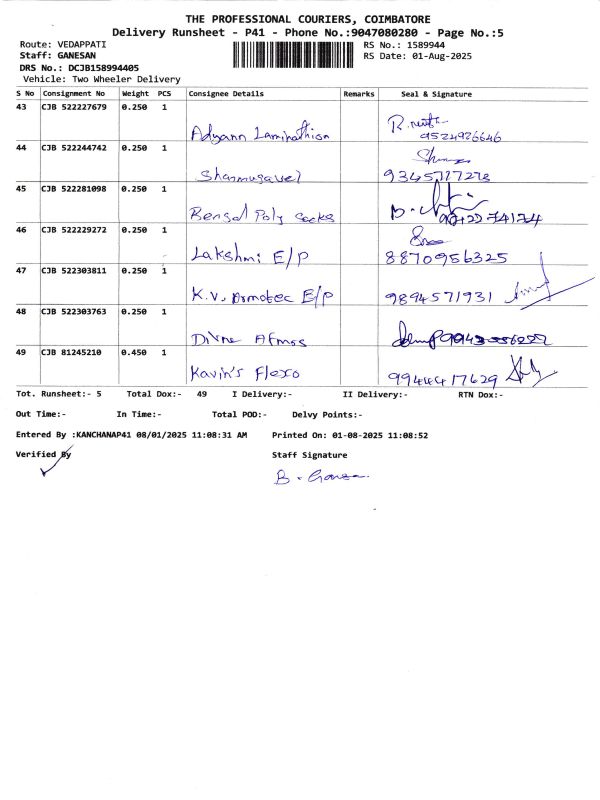 THE PROFESSIONAL COURIERS, COIMBATORE
Delivery Runsheet - P41 - Phone No.:9047080280 - Page No.:5
Route: VEDAPPATI RS No.: 1589944
Staff: GANESAN RS Date: 01-Aug-2025
DRS No.: DCJB158994405
Vehicle: Two Wheeler Delivery
S No Consignment No Weight PCS Consignee Details Remarks Seal & Signature
43 CJB 522227679 0.250 1
9524926646
44 CJB 522244742 0.250 1
Shanmugavel 9345777278
45 CJB 522281098 0.250 1
Bengal Poly
46 CJB 522229272 0.250 1
Lakshmi E/P 8870956325
47 CJB 522303811 0.250 1
K.V. E/P 9894571931
48 CJB 522303763 0.250 1
49 CJB 81245210 0.450 1
Kavin's Flexo 9944417629
Tot. Runsheet:- 5 Total Dox:- 49 I Delivery:- II Delivery:- RTN Dox:-
Out Time:- In Time:- Total POD:- Delvy Points:-
Entered By :KANCHANAP41 08/01/2025 11:08:31 AM Printed On: 01-08-2025 11:08:52
Verified By Staff Signature